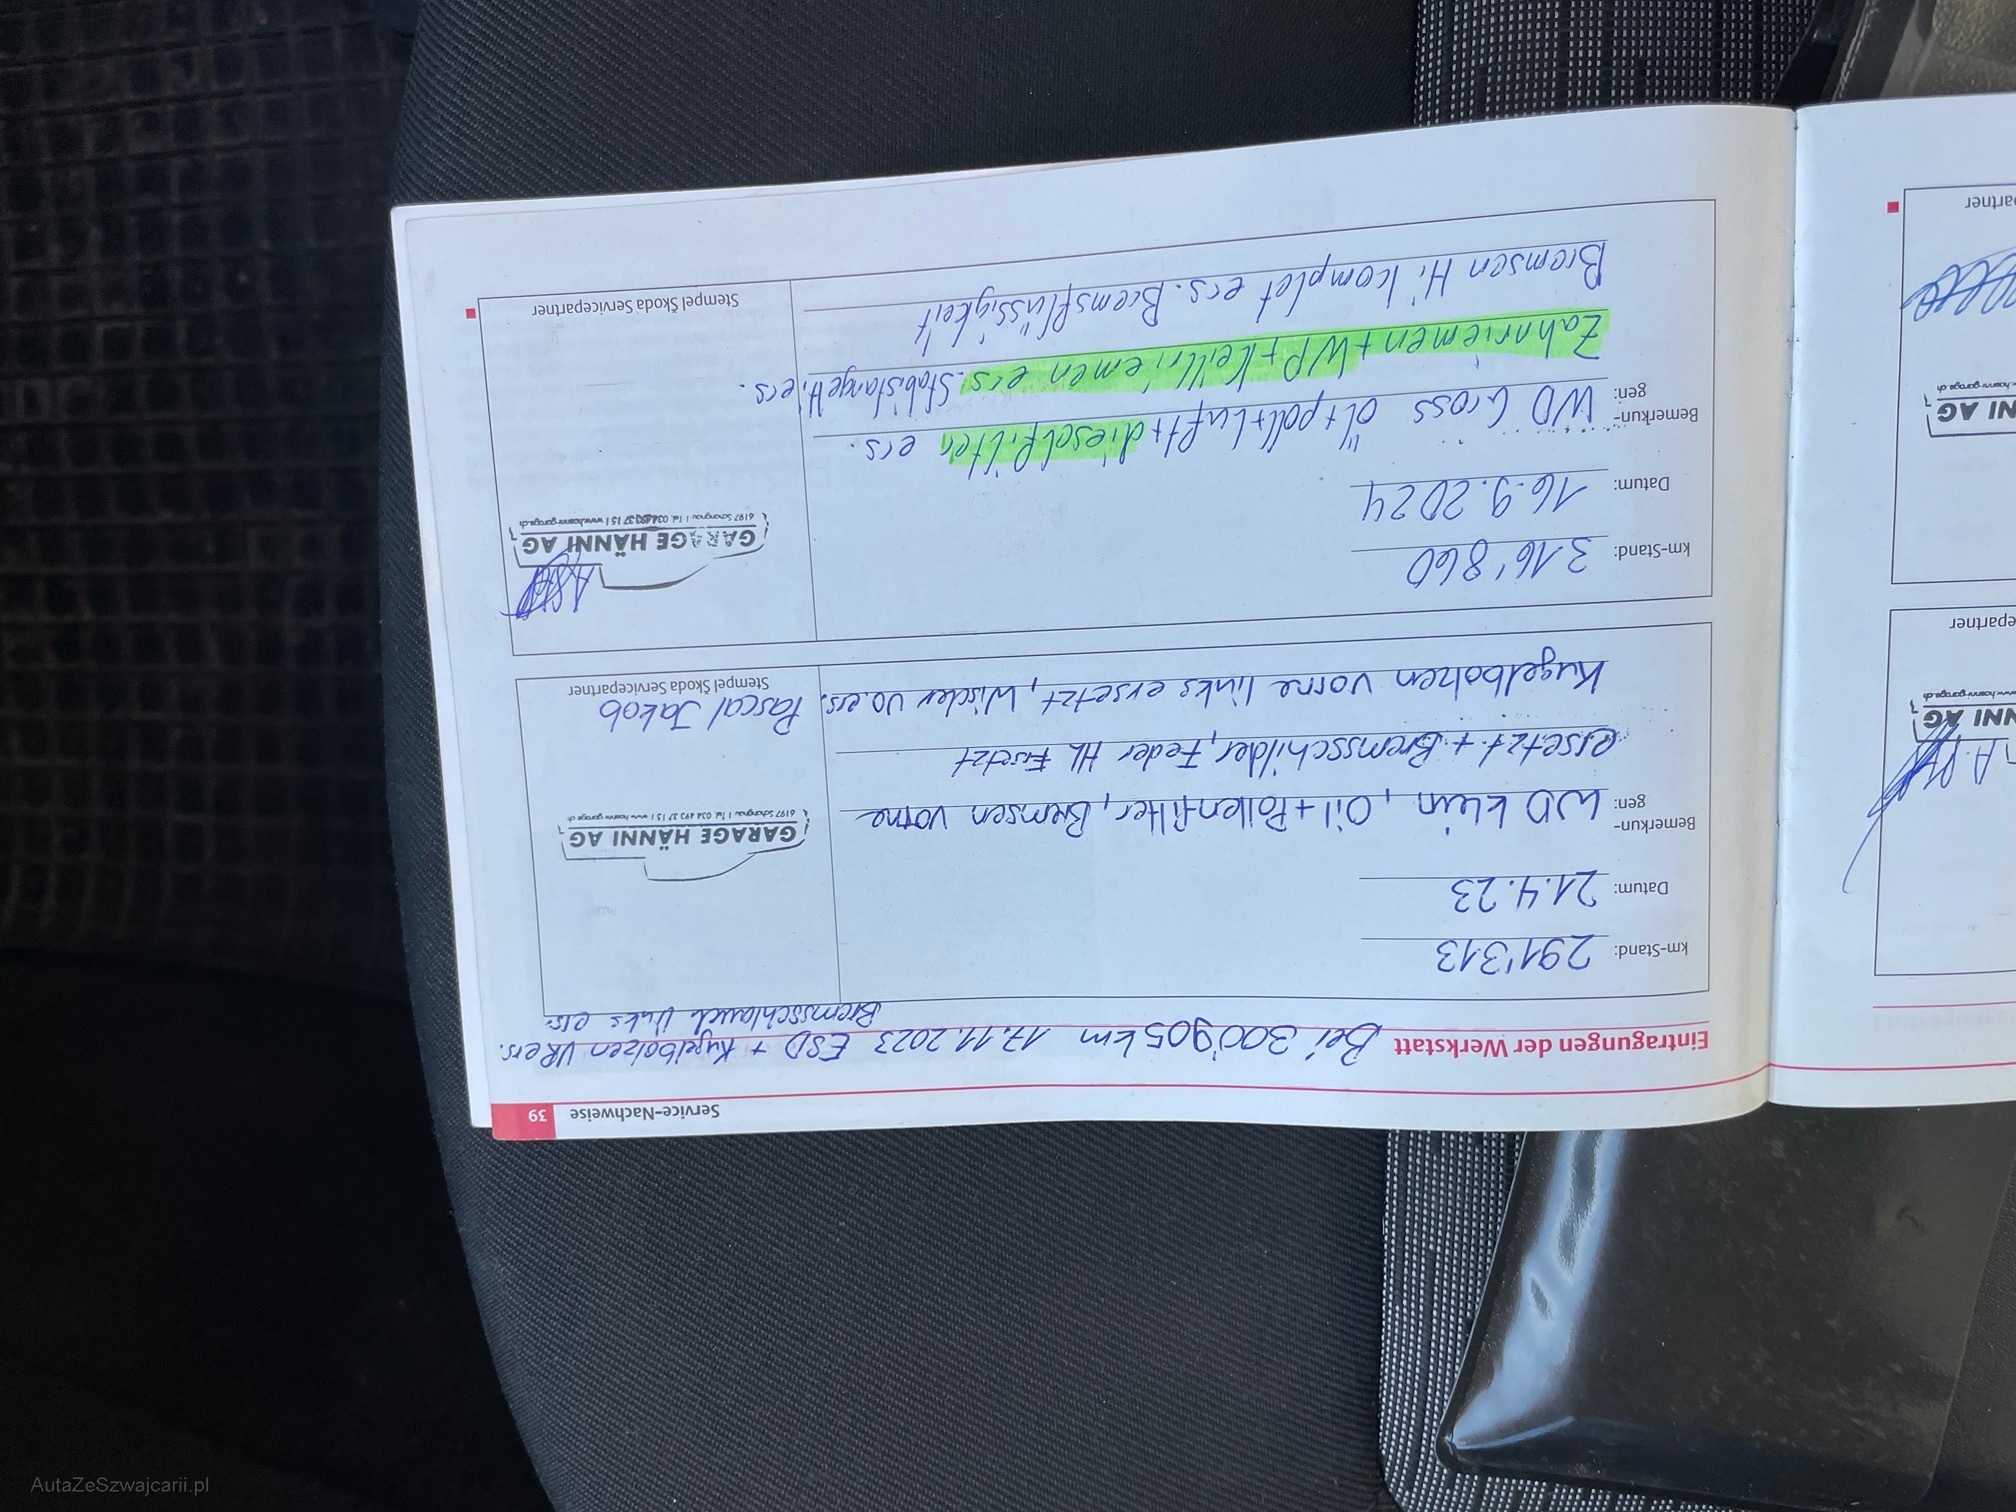 Service-Nachweise 39
Eintragungen der Werkstatt Bei 300'905km 17.11.2023 ESD + Kugelbolzen VR ers.
Bremsschlauch links ers.
km-Stand: 291'313
Datum: 21.4.23
Bemerkun-
gen: WD klein, Oil+Pollenfilter, Bremsen vorne
ersetzt + Bremsschilder, Feder HL Ersetzt
Kugelbolzen vorne links ersetzt, Wischer vo ers.
GARAGE HÄNNI AG
6197 Schangnau | Tel. 034 493 37 15 | www.haenni-garage.ch
Pascal Jakob
Stempel Škoda Servicepartner
km-Stand: 316'860
Datum: 16.9.2024
Bemerkun-
gen: WD Gross öl+poll+Luft+dieselfilter ers.
Zahnriemen+WP+Keilriemen ers. Stabstange H. ers.
Bremsen Hi komplet ers. Bremsflüssigkeit
GARAGE HÄNNI AG
6197 Schangnau | Tel. 034 493 37 15 | www.haenni-garage.ch
Stempel Škoda Servicepartner
NNI AG
epartner
NNI AG
partner
AutaZeSzwajcarii.pl